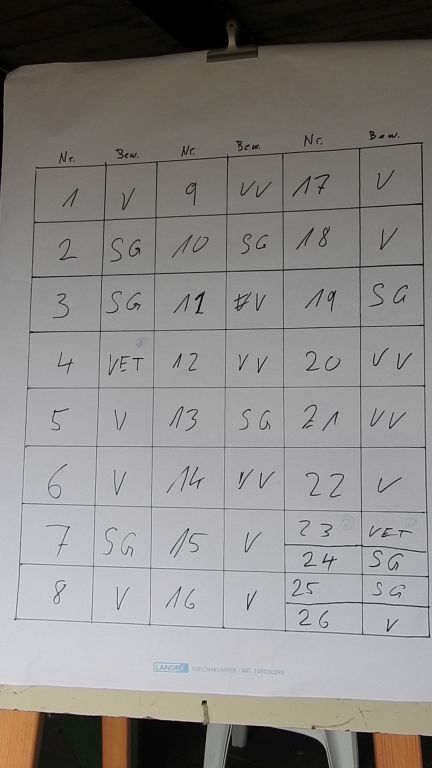 Nr. Bew. Nr. Bew. Nr. Bew.
1 V 9 VV 17 V
2 SG 10 SG 18 V
3 SG 11 V 19 SG
4 VET 12 VV 20 VV
5 V 13 SG 21 VV
6 V 14 VV 22 V
7 SG 15 V 23 VET
24 SG
8 V 16 V 25 SG
26 V
LANDRÉ FLIPCHARTPAPIER - ART. 100050593